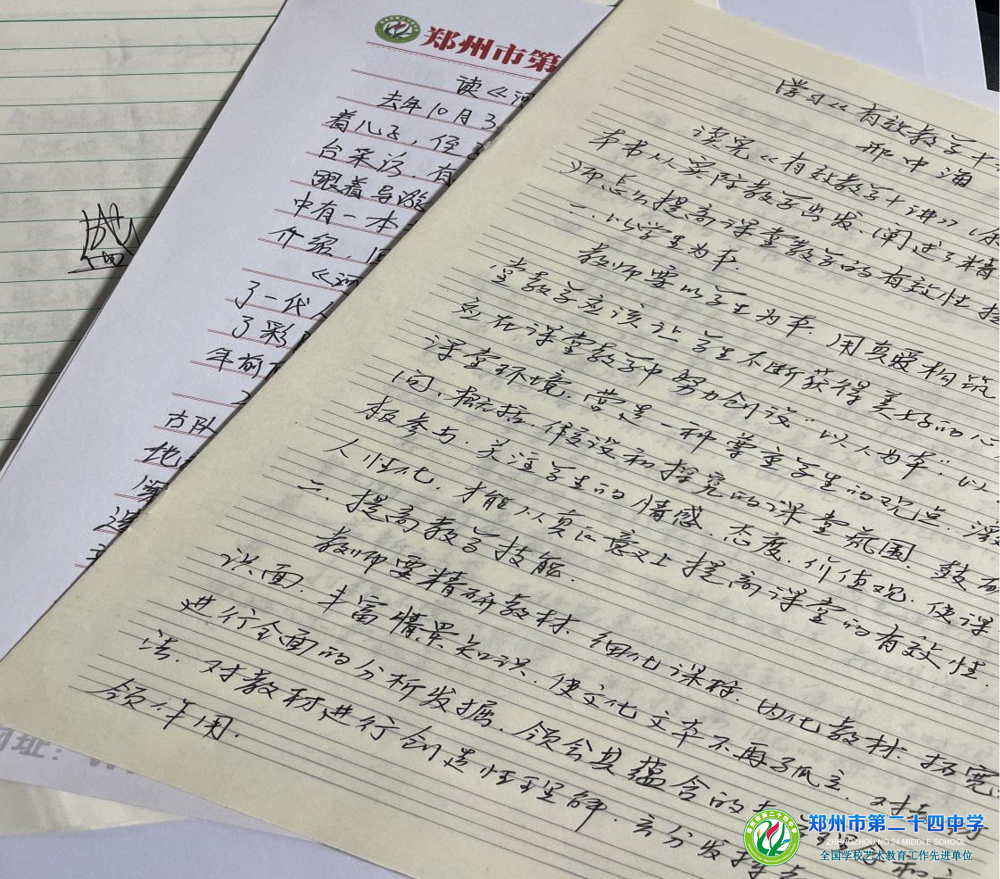 郑州市第
读《河
去年10月3
着儿子,侄
台采访,有
跟着导游
中有一本
介绍,
《河
了一代人
了彩
年前
方队
地
学习《有效教学十
邢中海
读完《有效教学十讲》
本书从实际教学出发,阐述了精
师怎么提高课堂教学的有效性
一.以学生为本.
教师要以学生为本,用真爱构筑
堂教学应该让学生不断获得美好的心
应在课堂教学中努力创设“以人为本”“以
课堂环境,营造一种尊重学生的观点,激
问,概括,假设和探究的课堂氛围,鼓励
极参与,关注学生的情感、态度、价值观,使课
人性化,才能从真正意义上提高课堂的有效性.
二.提高教学技能.
教师要精研教材,细化课标,内化教材,拓宽
识面,丰富情景知识,使文化文本不再孤立,对
进行全面的分析发掘,领会其蕴含的
法,对教材进行创造性理解,充分发挥
领作用.
网址:
郑州市第二十四中学
ZHENGZHOU NO.24 MIDDLE SCHOOL
全国学校艺术教育工作先进单位